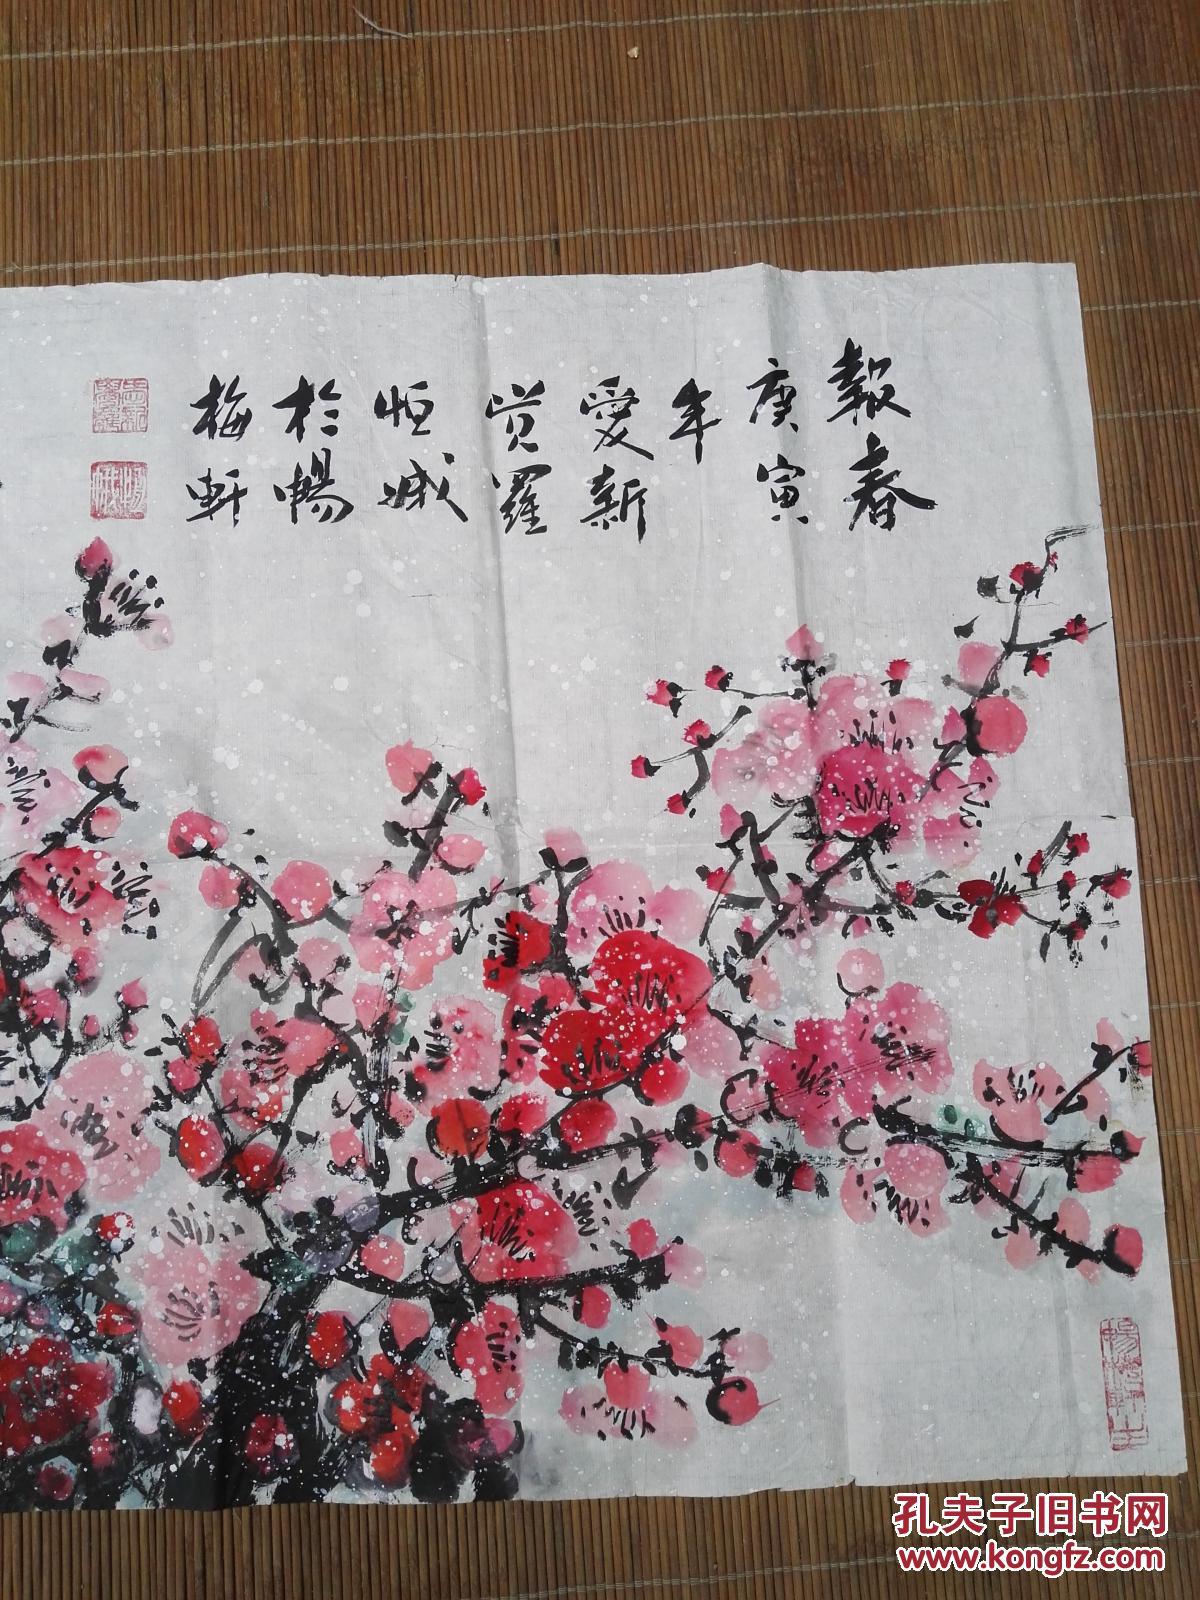 報春
庚寅
年
愛新
觉羅
恒娥
於暢
梅軒
愛新
覺羅
孔夫子旧书网
www.kongfz.com